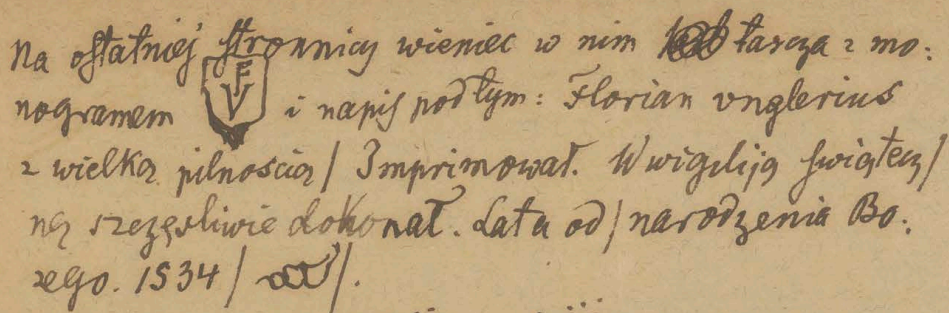 Na oſtatniej ſtronnicy wieniec w nim tarcza z mo:
nogramem FV i napis pod tym: Florian vnglerius
z wielką pilnością / Imprimował. W wigiliją ſwiątecz /
ną szczęsliwie dokonał. Lata od / narodzenia Bo:
żego. 1534 / /.